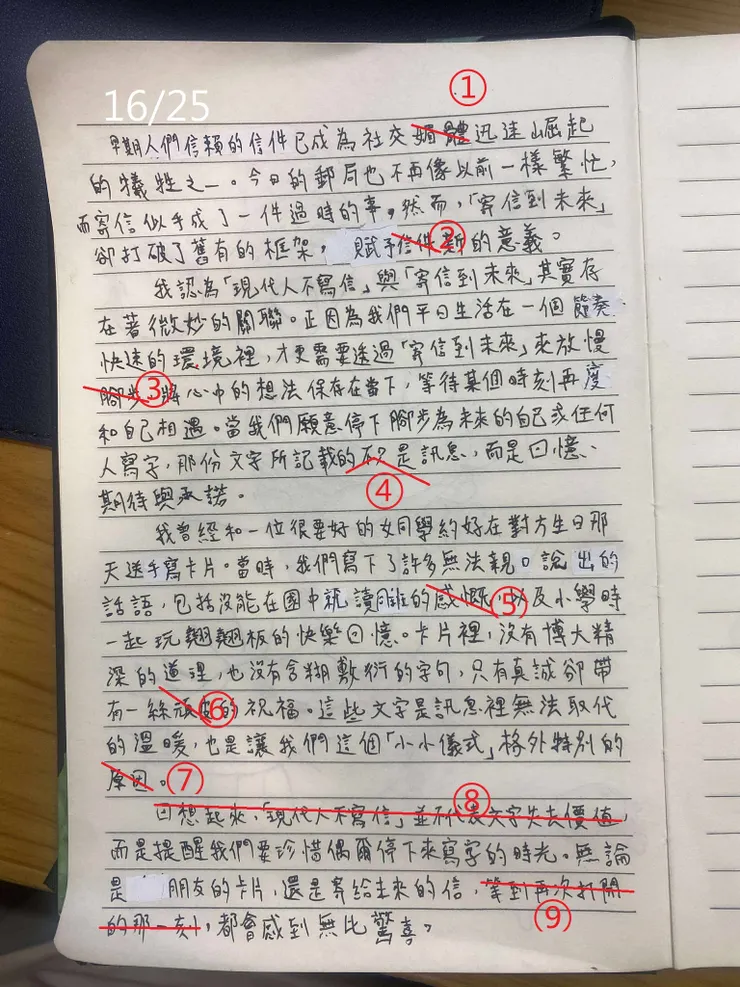 ①
16/25
早期人們信賴的信件已成為社交媒體迅速崛起
的犧牲之一。今日的郵局也不再像以前一樣繁忙,
而寄信似乎成了一件過時的事。然而,「寄信到未來」
卻打破了舊有的框架, 賦予信件②新的意義。
我認為「現代人不寫信」與「寄信到未來」其實存
在著微妙的關聯。正因為我們平日生活在一個節奏
快速的環境裡,才更需要透過「寄信到未來」來放慢
腳步③將心中的想法保存在當下,等待某個時刻再度
和自己相遇。當我們願意停下腳步為未來的自己或任何
人寫字,那份文字所記載的不只是訊息,而是回憶、
期待與承諾。 ④
我曾經和一位很要好的女同學約好在對方生日那
天送手寫卡片。當時,我們寫下了許多無法親口說出的
話語,包括沒能在國中就讀同班的感慨⑤以及小學時
一起玩翹翹板的快樂回憶。卡片裡,沒有博大精
深的道理,也沒有含糊敷衍的字句,只有真誠卻帶
有一絲頑皮⑥的祝福。這些文字是訊息裡無法取代
的溫暖,也是讓我們這個「小小儀式」格外特別的
原因。⑦
回想起來,「現代人不寫信」並不代表文字失去價值, ⑧
而是提醒我們要珍惜偶爾停下來寫字的時光。無論
是 朋友的卡片,還是寄給未來的信,等到再次打開
的那一刻,都會感到無比驚喜。 ⑨